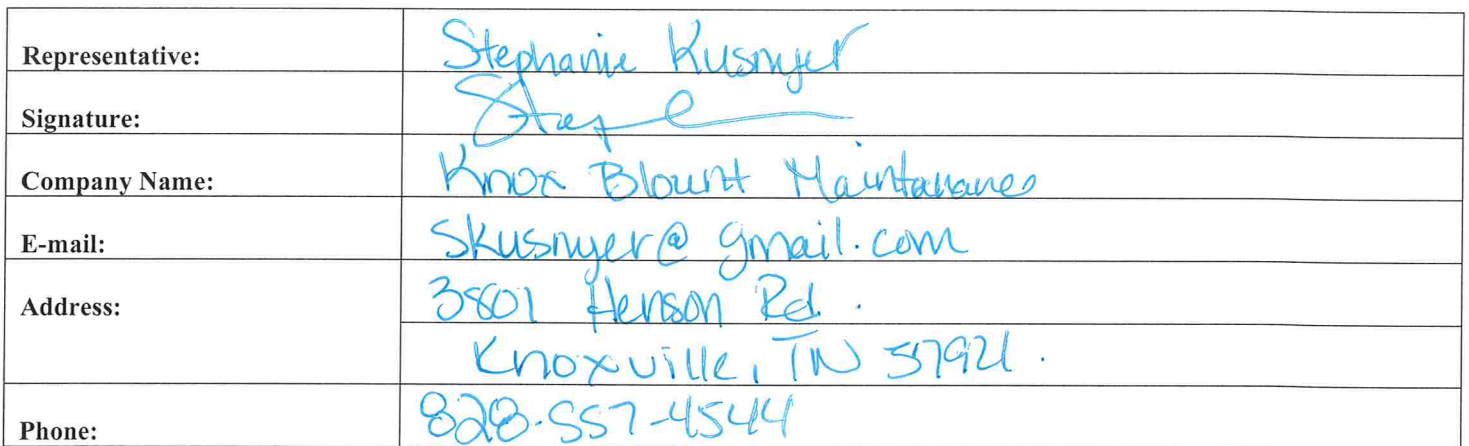 Representative: Stephanie Kusnyer
Signature:
Company Name: Knox Blount Maintanance
E-mail: skusnyer@gmail.com
Address: 3801 Henson Rd.
Knoxville, TN 37921.
Phone: 828-557-4544